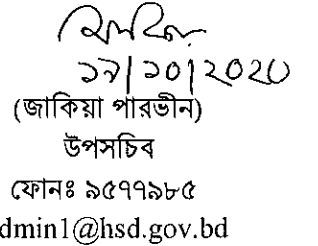 ১৯/১০/২০২০
(জাকিয়া পারভীন)
উপসচিব
ফোনঃ ৯৫৭৭৯৮৫
dmin1@hsd.gov.bd